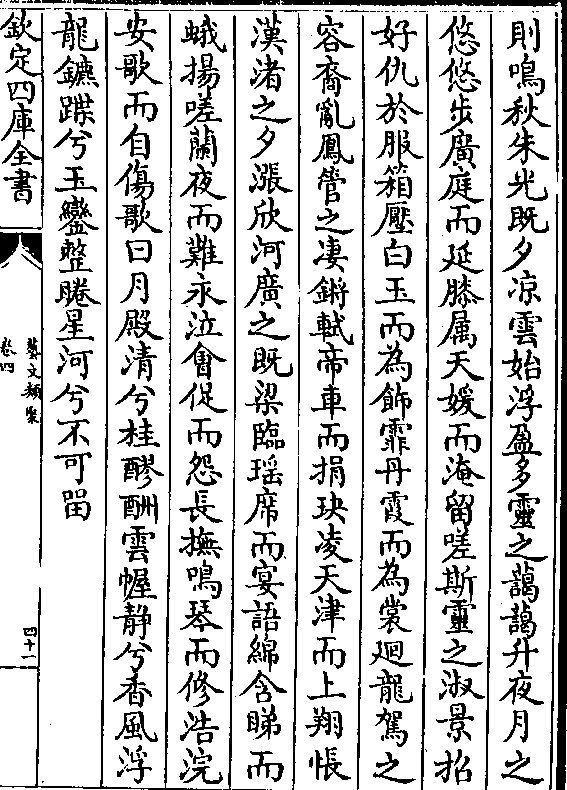 則鳴秋朱光既夕凉雲始浮盈多靈之藹藹升夜月之
悠悠步廣庭而延膝属天媛而淹留嗟斯靈之淑景招
好仇於服箱壓白玉而為飾霏丹霞而為裳廻龍駕之
容裔亂鳳管之凄鏘軾帝車而捐玦凌天津而上翔悵
漢渚之夕漲欣河廣之既梁臨瑶席而宴語綿含睇而
蛾揚嗟蘭夜而難永泣會促而怨長撫鳴琴而修浩浣
安歌而自傷歌曰月殿清兮桂醪酬雲幄静兮香風浮
龍鑣蹀兮玉鑾整睠星河兮不可畱
欽定四庫全書
藝文類聚
卷四
四十一